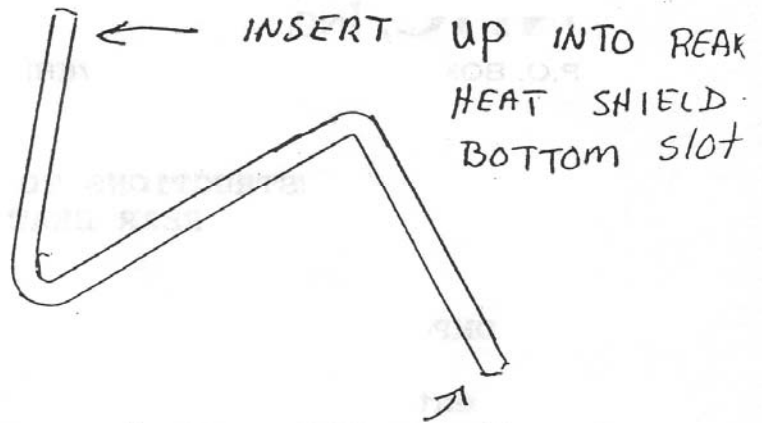 INSERT UP INTO REAR
HEAT SHIELD
BOTTOM Slot
P.O. BOX